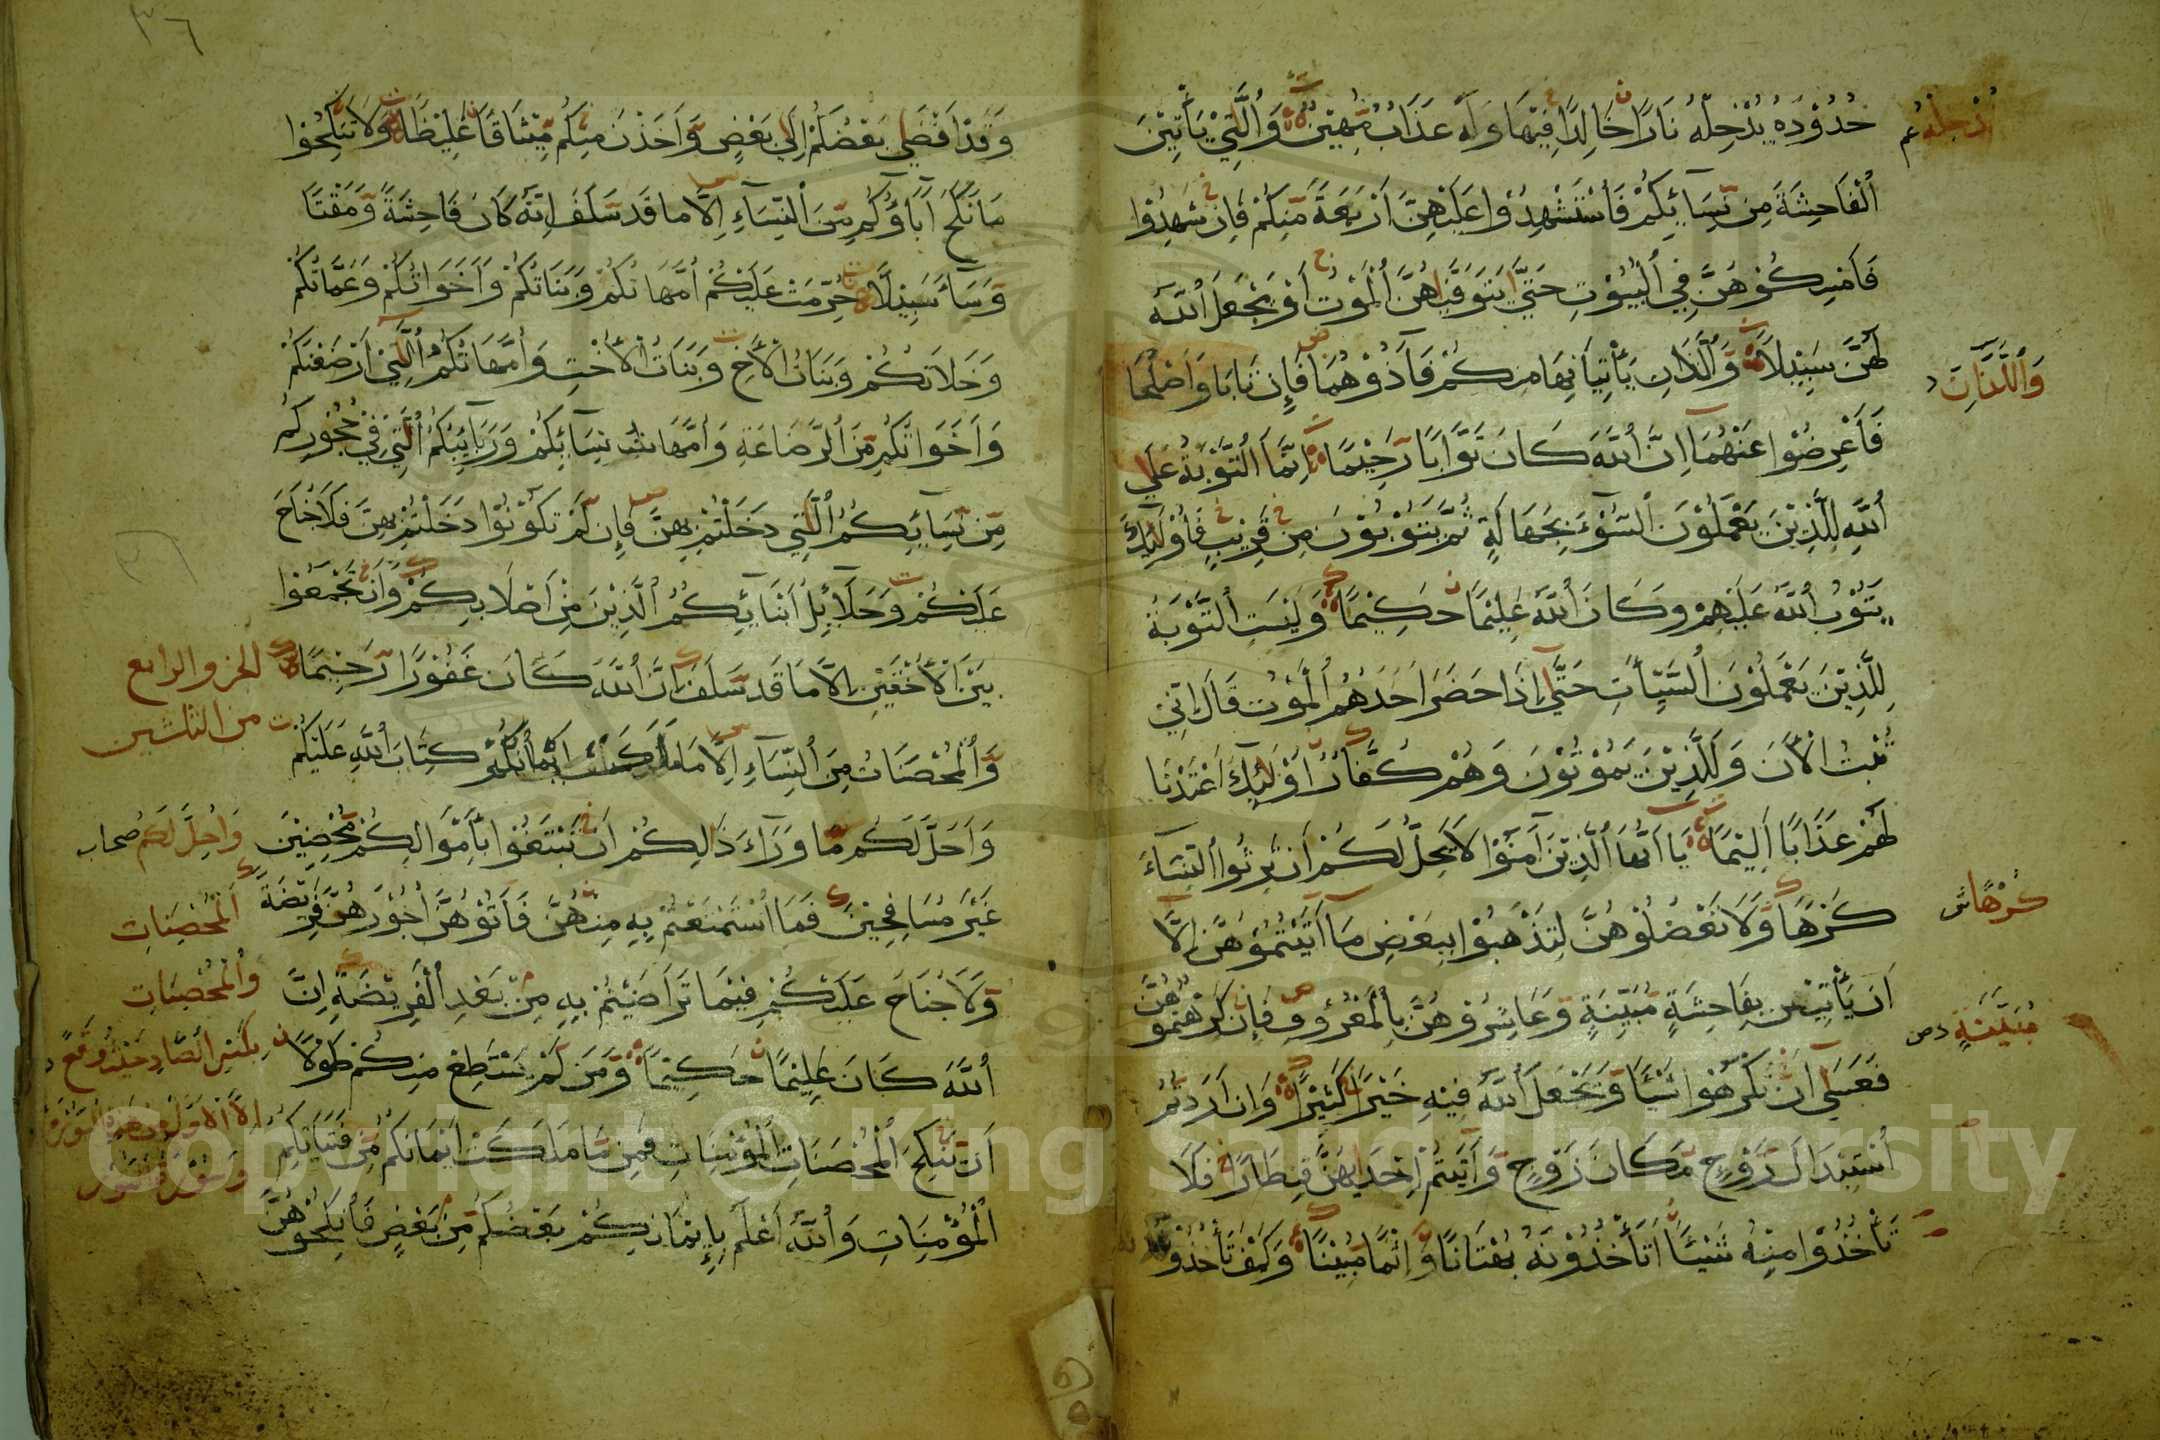 حُدُوْدَهُ يُدْخِلْهُ نَارًا خَالِدًا فِيْهَا وَلَهُ عَذَابٌ مُهِيْنٌ وَالّٰتِيْ يَأْتِيْنَ
الْفَاحِشَةَ مِنْ نِسَآئِكُمْ فَاسْتَشْهِدُوْا عَلَيْهِنَّ اَرْبَعَةً مِنْكُمْ فَاِنْ شَهِدُوْا
فَاَمْسِكُوْهُنَّ فِي الْبُيُوْتِ حَتّٰى يَتَوَفّٰىهُنَّ الْمَوْتُ اَوْ يَجْعَلَ اللّٰهُ
لَهُنَّ سَبِيْلًا وَالَّذَانِ يَأْتِيَانِهَا مِنْكُمْ فَآذُوْهُمَا فَاِنْ تَابَا وَاَصْلَحَا
فَاَعْرِضُوْا عَنْهُمَا اِنَّ اللّٰهَ كَانَ تَوَّابًا رَحِيْمًا اِنَّمَا التَّوْبَةُ عَلَى
اللّٰهِ لِلَّذِيْنَ يَعْمَلُوْنَ السُّوْءَ بِجَهَالَةٍ ثُمَّ يَتُوْبُوْنَ مِنْ قَرِيْبٍ فَاُوْلٰئِكَ
يَتُوْبُ اللّٰهُ عَلَيْهِمْ وَكَانَ اللّٰهُ عَلِيْمًا حَكِيْمًا وَلَيْسَتِ التَّوْبَةُ
لِلَّذِيْنَ يَعْمَلُوْنَ السَّيِّاٰتِ حَتّٰى اِذَا حَضَرَ اَحَدَهُمُ الْمَوْتُ قَالَ اِنِّيْ
تُبْتُ الْاٰنَ وَلَا الَّذِيْنَ يَمُوْتُوْنَ وَهُمْ كُفَّارٌ اُوْلٰئِكَ اَعْتَدْنَا
لَهُمْ عَذَابًا اَلِيْمًا يَا اَيُّهَا الَّذِيْنَ آمَنُوْا لَا يَحِلُّ لَكُمْ اَنْ تَرِثُوا النِّسَآءَ
كَرْهًا وَلَا تَعْضُلُوْهُنَّ لِتَذْهَبُوْا بِبَعْضِ مَا آتَيْتُمُوْهُنَّ اِلَّا
اَنْ يَأْتِيْنَ بِفَاحِشَةٍ مُبَيِّنَةٍ وَعَاشِرُوْهُنَّ بِالْمَعْرُوْفِ فَاِنْ كَرِهْتُمُوْهُنَّ
فَعَسٰى اَنْ تَكْرَهُوْا شَيْئًا وَيَجْعَلَ اللّٰهُ فِيْهِ خَيْرًا كَثِيْرًا وَاِنْ اَرَدْتُمُ
اسْتِبْدَالَ زَوْجٍ مَكَانَ زَوْجٍ وَآتَيْتُمْ اِحْدٰىهُنَّ قِنْطَارًا فَلَا
تَأْخُذُوْا مِنْهُ شَيْئًا اَتَأْخُذُوْنَهُ بُهْتَانًا وَاِثْمًا مُبِيْنًا وَكَيْفَ تَأْخُذُوْنَهُ
نُدْخِلْهُ عم
وَالَّذَانِّ د
كُرْهًا ش
مُبَيَّنَةٍ د ص
٣٦
وَقَدْ اَفْضٰى بَعْضُكُمْ اِلٰى بَعْضٍ وَاَخَذْنَ مِنْكُمْ مِيْثَاقًا غَلِيْظًا وَلَا تَنْكِحُوْا
مَا نَكَحَ آبَاؤُكُمْ مِنَ النِّسَآءِ اِلَّا مَا قَدْ سَلَفَ اِنَّهُ كَانَ فَاحِشَةً وَمَقْتًا
وَسَآءَ سَبِيْلًا حُرِّمَتْ عَلَيْكُمْ اُمَّهَاتُكُمْ وَبَنَاتُكُمْ وَاَخَوَاتُكُمْ وَعَمَّاتُكُمْ
وَخَالَاتُكُمْ وَبَنَاتُ الْاَخِ وَبَنَاتُ الْاُخْتِ وَاُمَّهَاتُكُمُ الّٰتِيْ اَرْضَعْنَكُمْ
وَاَخَوَاتُكُمْ مِنَ الرَّضَاعَةِ وَاُمَّهَاتُ نِسَآئِكُمْ وَرَبَآئِبُكُمُ الّٰتِيْ فِيْ حُجُوْرِكُمْ
مِنْ نِسَآئِكُمُ الّٰتِيْ دَخَلْتُمْ بِهِنَّ فَاِنْ لَمْ تَكُوْنُوْا دَخَلْتُمْ بِهِنَّ فَلَا جُنَاحَ
عَلَيْكُمْ وَحَلَآئِلُ اَبْنَآئِكُمُ الَّذِيْنَ مِنْ اَصْلَابِكُمْ وَاَنْ تَجْمَعُوْا
بَيْنَ الْاُخْتَيْنِ اِلَّا مَا قَدْ سَلَفَ اِنَّ اللّٰهَ كَانَ غَفُوْرًا رَحِيْمًا
وَالْمُحْصَنَاتُ مِنَ النِّسَآءِ اِلَّا مَا مَلَكَتْ اَيْمَانُكُمْ كِتَابَ اللّٰهِ عَلَيْكُمْ
وَاَحَلَّ لَكُمْ مَا وَرَآءَ ذَالِكُمْ اَنْ تَبْتَغُوْا بِاَمْوَالِكُمْ مُحْصِنِيْنَ
غَيْرَ مُسَافِحِيْنَ فَمَا اسْتَمْتَعْتُمْ بِهِ مِنْهُنَّ فَآتُوْهُنَّ اُجُوْرَهُنَّ فَرِيْضَةً
وَلَا جُنَاحَ عَلَيْكُمْ فِيْمَا تَرَاضَيْتُمْ بِهِ مِنْ بَعْدِ الْفَرِيْضَةِ اِنَّ
اللّٰهَ كَانَ عَلِيْمًا حَكِيْمًا وَمَنْ لَمْ يَسْتَطِعْ مِنْكُمْ طَوْلًا
اَنْ يَنْكِحَ الْمُحْصَنَاتِ الْمُؤْمِنَاتِ فَمِنْ مَا مَلَكَتْ اَيْمَانُكُمْ مِنْ فَتَيَاتِكُمُ
الْمُؤْمِنَاتِ وَاللّٰهُ اَعْلَمُ بِاِيْمَانِكُمْ بَعْضُكُمْ مِنْ بَعْضٍ فَانْكِحُوْهُنَّ
الجزو الرابع
من الثلثين
وَاُحِلَّ لَكُمْ صحاب
اَلْمُحْصِنَاتِ
وَالْمُحْصِنَاتِ
بكسر الصاد حيث وقع
Copyright © King Saud University